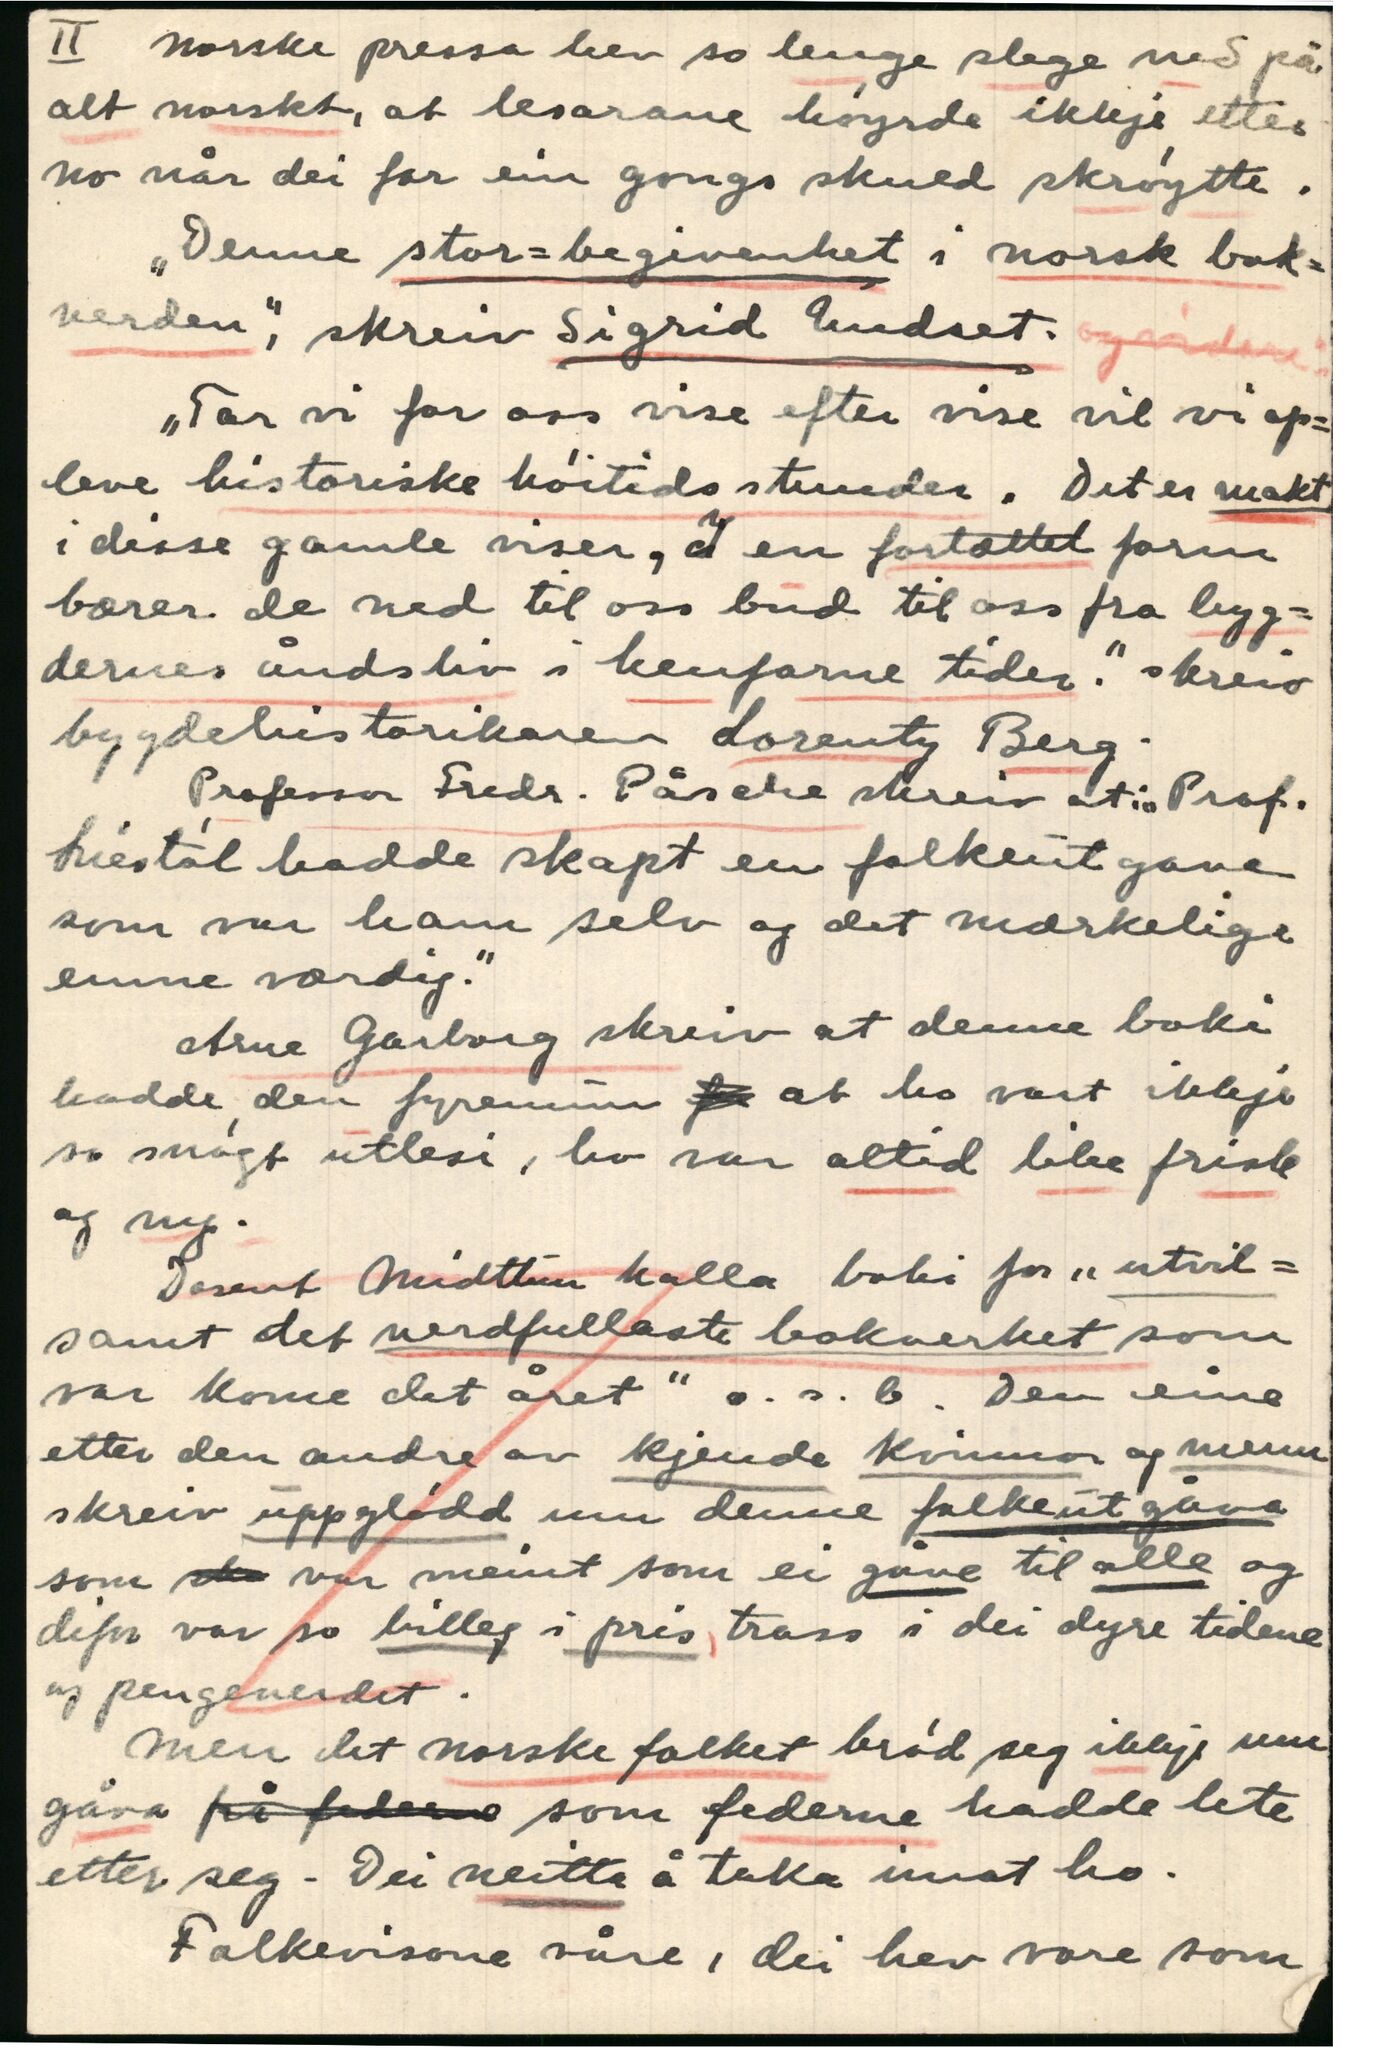 II norske pressa hev so lenge slege ned på
alt norskt, at lesarane höyrde ikkje etter
no når dei for ein gongs skuld skröytte.
„Denne stor=begivenhet i norsk bok=
verden", skreiv Sigrid Undset. og vidare:
„Tar vi for oss vise efter vise vil vi op=
leve historiske höitidsstunder. Det er makt
i disse gamle viser, I en fortættet form
bærer de ned til oss bud til oss fra byg=
dernes åndsliv i henfarne tider." skreiv
bygdehistorikaren Lorentz Berg.
Professor Fredr. Påsche skreiv at: „Prof.
Liestöl hadde skapt en folkeutgave
som var ham selv og det mærkelige
emne værdig."
Arne Garborg skreiv at denne boki
hadde den fyremun at ho vart ikkje
so snögt utlesi, ho var altid like frisk
og ny.
Dosent Midttun kalla boki for „utvil=
samt det verdfullaste bokverket som
var kome det året" o.s.b. Den eine
etter den andre av kjende kvinnor og menn
skreiv uppglödd um denne folkeutgåva
som ska var meint som ei gåve til alle og
difor var so billeg i pris, trass i dei dyre tidene
og pengeverdet.
Men det norske folket bröd seg ikkje um
gåva på federne som federne hadde lete
etter seg. Dei neitta å taka imot ho.
Folkevisone våre, dei hev vore som